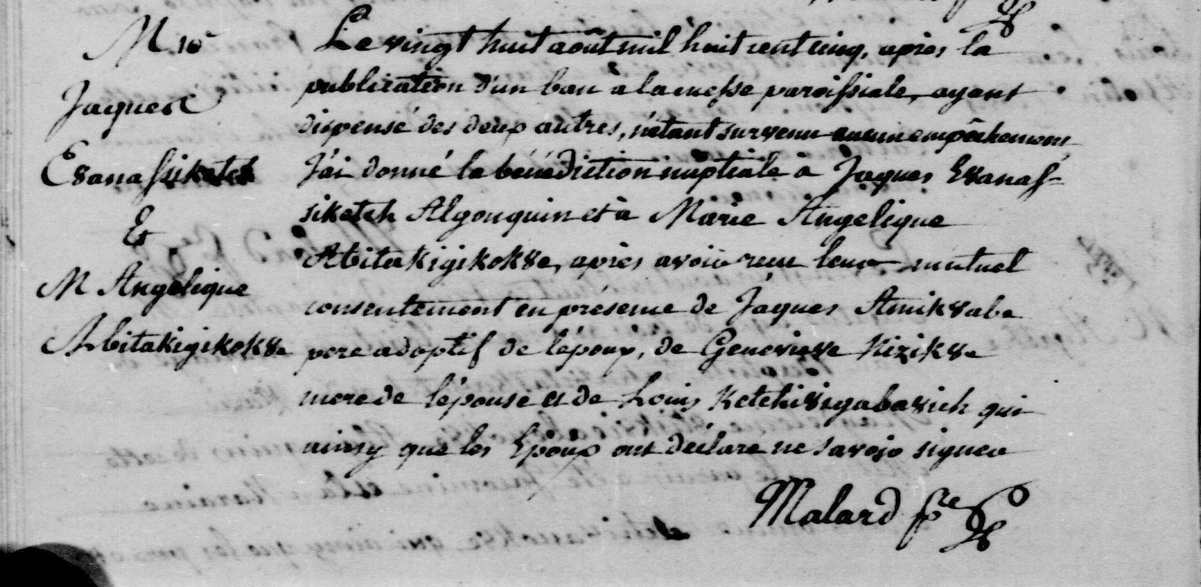 M 10
Jaques
E8anassiketch
&
M Angélique
Abitakigikok8e
Le vingt huit août mil huit cent cinq, après la
publication d'un ban à la messe paroissiale, ayant
dispensé des deux autres, n'étant survenu aucun empêchement
J'ai donné la bénédiction nuptiale à Jaques E8anas-
siketch Algonquin et à Marie Angelique
Abitakigikok8e, après avoir reçu leur mutuel
consentement en présence de Jaques Amik8abe
pere adoptif de l'époux, de Genevieve Kizik8e
mere de l'épouse et de Louis Ketchi8igaba8ich qui
ainsy que les Epoux ont déclaré ne savoir signer
Malard ptre